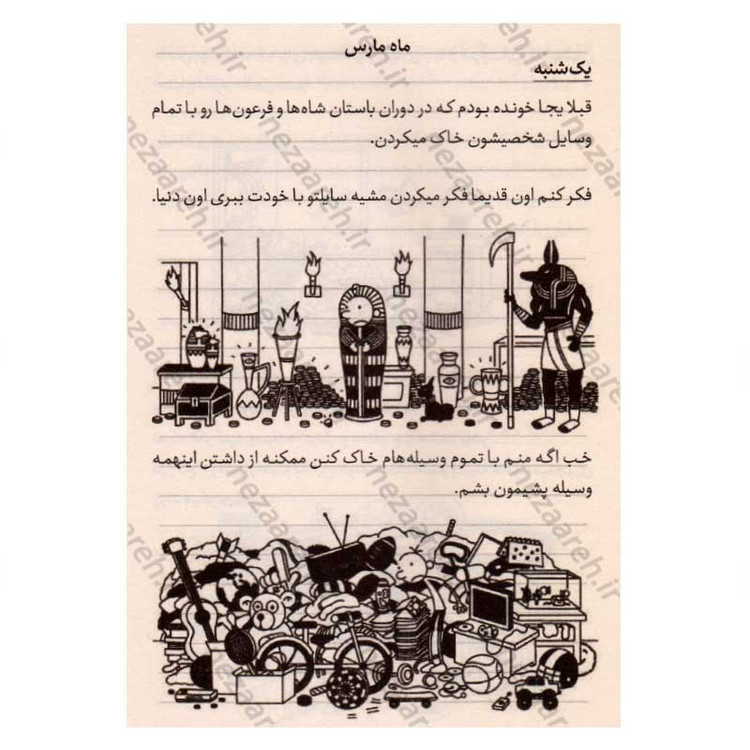 ماه مارس
یک‌شنبه
قبلا یجا خونده بودم که در دوران باستان شاه‌ها و فرعون‌ها رو با تمام
وسایل شخصیشون خاک میکردن.
فکر کنم اون قدیما فکر میکردن میشه سایلتو با خودت ببری اون دنیا.
خب اگه منم با تموم وسیله‌هام خاک کنن ممکنه از داشتن اینهمه
وسیله پشیمون بشم.
nezaareh.ir